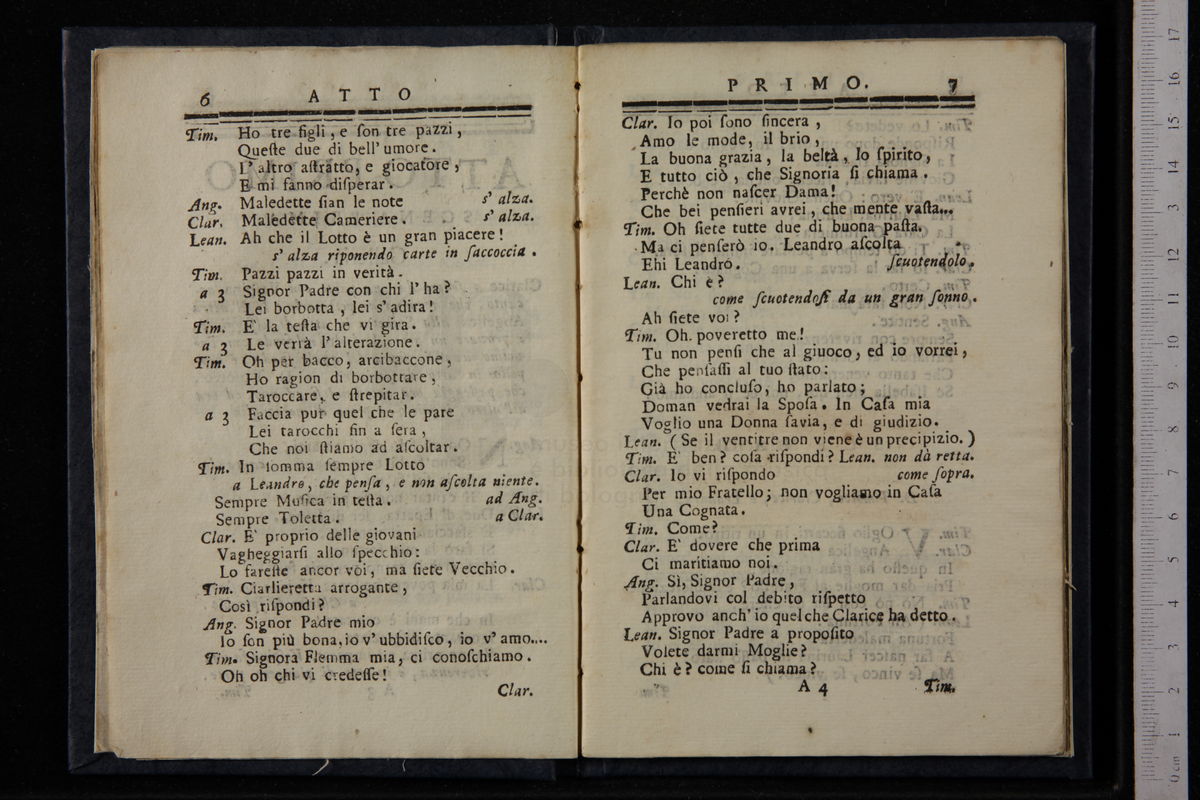 6 ATTO
Tim. Ho tre figli, e ſon tre pazzi,
Queſte due di bell' umore.
L' altro aſtratto, e giocatore,
E mi fanno diſperar.
Ang. Maledette ſian le note s' alza.
Clar. Maledette Cameriere. s' alza.
Lean. Ah che il Lotto è un gran piacere!
s' alza riponendo carte in ſaccoccia.
Tim. Pazzi pazzi in verità.
a 3 Signor Padre con chi l' ha?
Lei borbotta, lei s' adira!
Tim. E' la teſta che vi gira.
a 3 Le verrà l' alterazione.
Tim. Oh per bacco, arcibaccone,
Ho ragion di borbottare,
Taroccare, e ſtrepitar.
a 3 Faccia pur quel che le pare
Lei tarocchi fin a ſera,
Che noi ſtiamo ad aſcoltar.
Tim. In ſomma ſempre Lotto
a Leandro, che penſa, e non aſcolta niente.
Sempre Muſica in teſta. ad Ang.
Sempre Toletta. a Clar.
Clar. E' proprio delle giovani
Vagheggiarſi allo ſpecchio:
Lo fareſte ancor voi, ma ſiete Vecchio.
Tim. Ciarlieretta arrogante,
Così riſpondi?
Ang. Signor Padre mio
Io ſon più bona, io v' ubbidiſco, io v' amo....
Tim. Signora Flemma mia, ci conoſchiamo.
Oh oh chi vi credeſſe!
Clar.
PRIMO. 7
Clar. Io poi ſono ſincera,
Amo le mode, il brio,
La buona grazia, la beltà, lo ſpirito,
E tutto ciò, che Signoria ſi chiama.
Perchè non naſcer Dama!
Che bei penſieri avrei, che mente vaſta...
Tim. Oh ſiete tutte due di buona paſta.
Ma ci penſerò io. Leandro aſcolta
Ehi Leandro. ſcuotendolo.
Lean. Chi è?
come ſcuotendoſi da un gran ſonno.
Ah ſiete voi?
Tim. Oh. poveretto me!
Tu non penſi che al giuoco, ed io vorrei,
Che penſaſſi al tuo ſtato:
Già ho concluſo, ho parlato;
Doman vedrai la Spoſa. In Caſa mia
Voglio una Donna ſavia, e di giudizio.
Lean. (Se il ventitre non viene è un precipizio.)
Tim. E' ben? coſa riſpondi? Lean. non dà retta.
Clar. Io vi riſpondo come ſopra.
Per mio Fratello; non vogliamo in Caſa
Una Cognata.
Tim. Come?
Clar. E' dovere che prima
Ci maritiamo noi.
Ang. Sì, Signor Padre,
Parlandovi col debito riſpetto
Approvo anch' io quel che Clarice ha detto.
Lean. Signor Padre a propoſito
Volete darmi Moglie?
Chi è? come ſi chiama?
A 4 Tim.